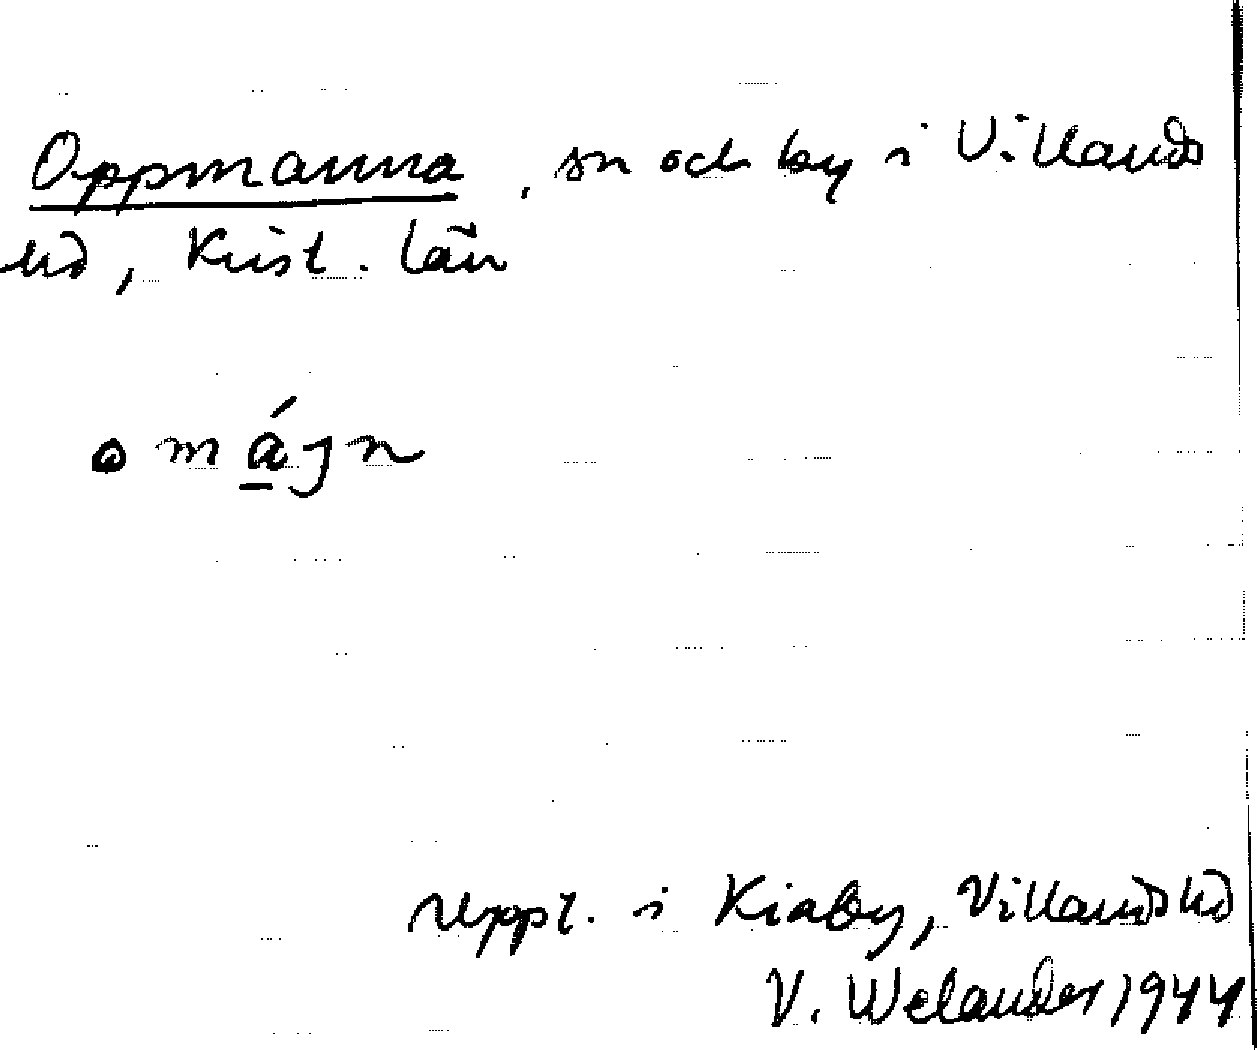 Oppmanna, sn och by i Villands
hd, Krist. län
omájn
uppt. i Kiaby, Villands hd
V. Welander 1944